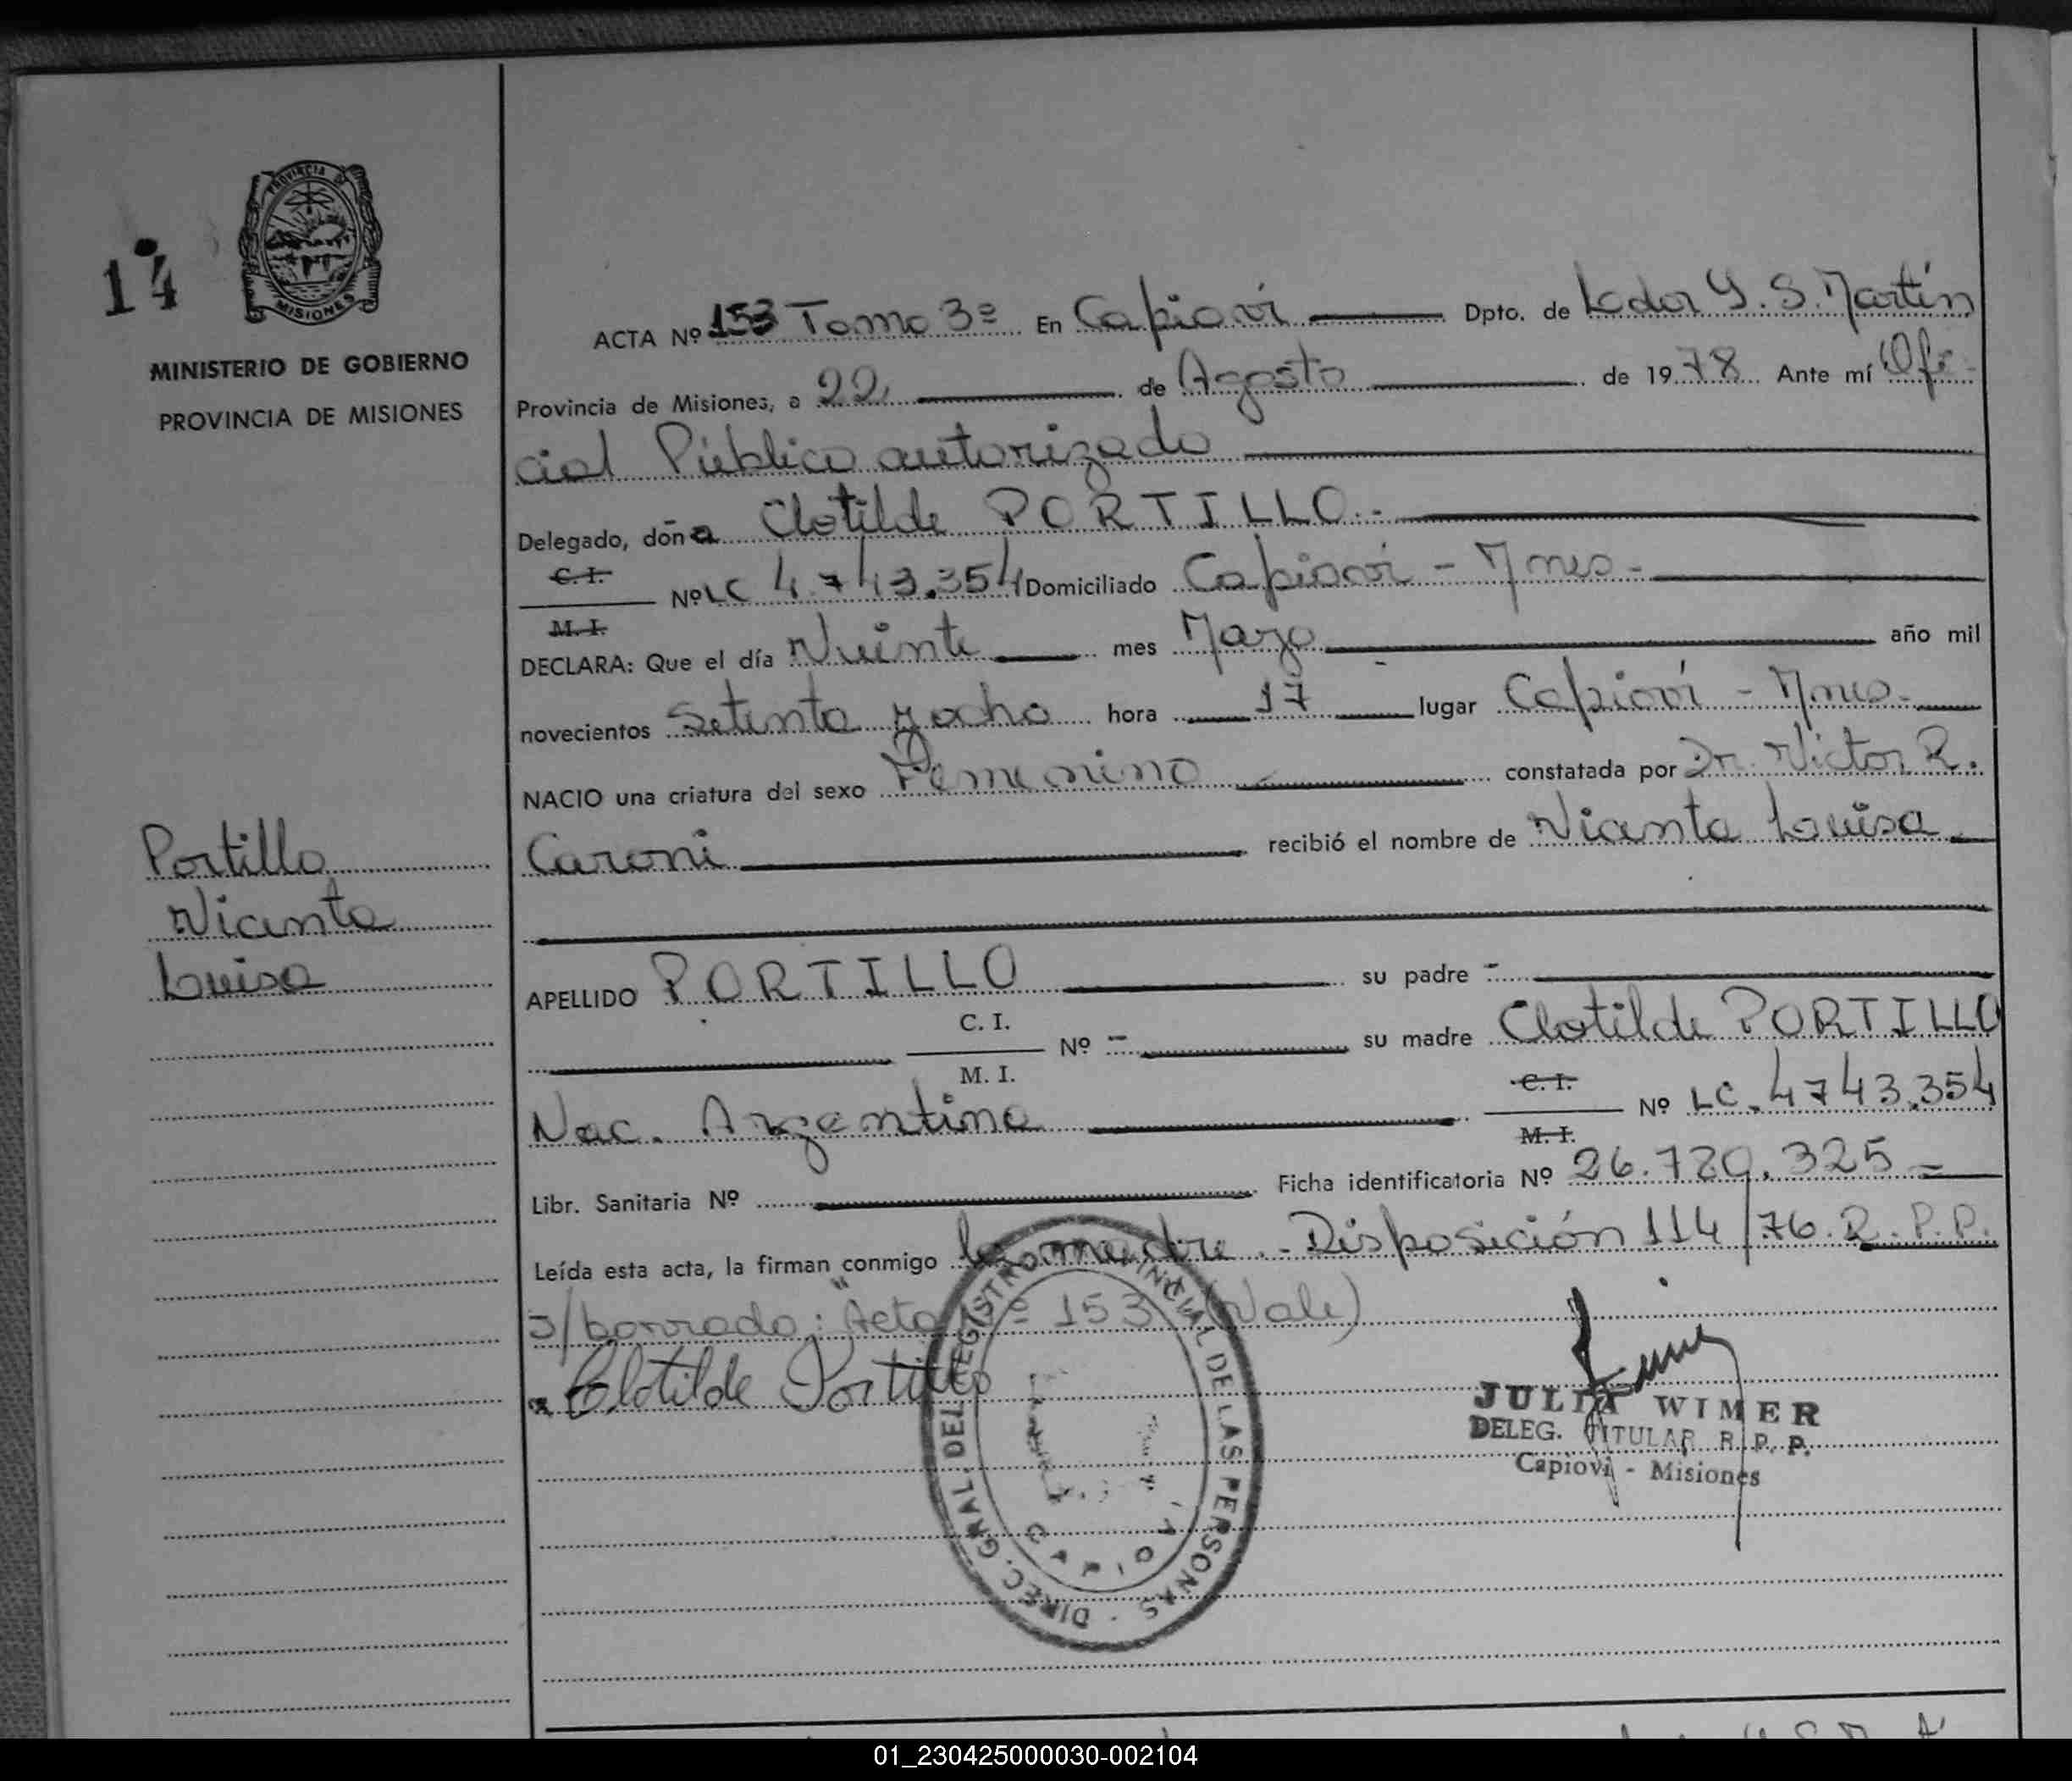 14
PROVINCIA DE
MISIONES
MINISTERIO DE GOBIERNO
PROVINCIA DE MISIONES
ACTA Nº 153 Tomo 3º En Capioví Dpto. de Lodor G. S. Martín
Provincia de Misiones, a 22 de Agosto de 1978 Ante mí Ofi-
cial Público autorizado
Delegado, doña Clotilde PORTILLO.-
C. I.
Nº LC 4.743.354 Domiciliado Capioví - Mnes-
M. I.
DECLARA: Que el día Veinte mes Mayo año mil
novecientos Setenta y ocho hora 17 lugar Capioví - Mnes.
NACIO una criatura del sexo Femenino constatada por Dr. Victor R.
Caroni recibió el nombre de Vicenta Luisa
Portillo
Vicenta
Luisa
APELLIDO PORTILLO su padre -
C. I.
Nº - su madre Clotilde PORTILLO
M. I.
Nac. Argentina
C. I.
Nº LC. 4743.354
M. I.
Libr. Sanitaria Nº Ficha identificatoria Nº 26.729.325 =
Leída esta acta, la firman conmigo la madre.- Disposición 114/76. R. P. P.
S/borrado: "Acta Nº 153 (Vale)
x Clotilde Portillo
DIREC. GRAL. DEL REGISTRO PROVINCIAL DE LAS PERSONAS
CAPIOVI
JULIA WIMER
DELEG. TITULAR R. P. P.
Capioví - Misiones
01_230425000030-002104